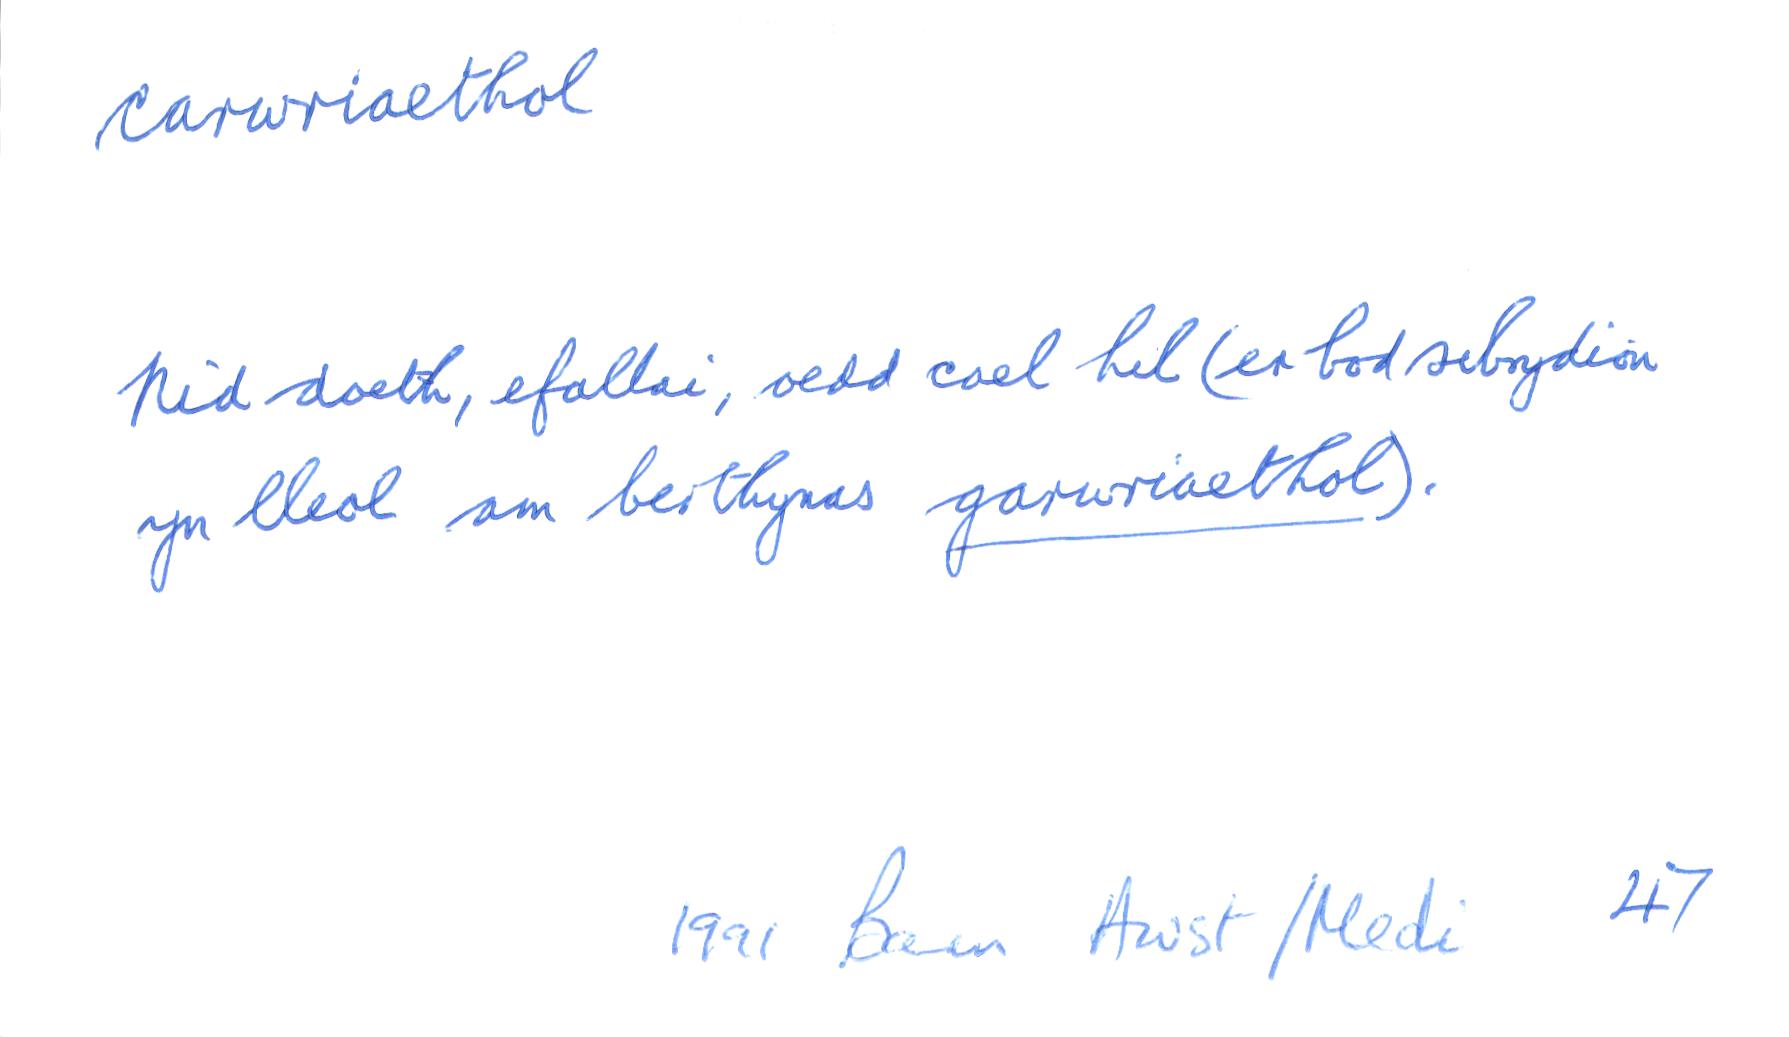 carwriaethol
Nid doeth, efallai, oedd cael hil (er bod sibrydion
yn lleol am berthynas garwriaethol).
1991 Barn Awst/Medi 47